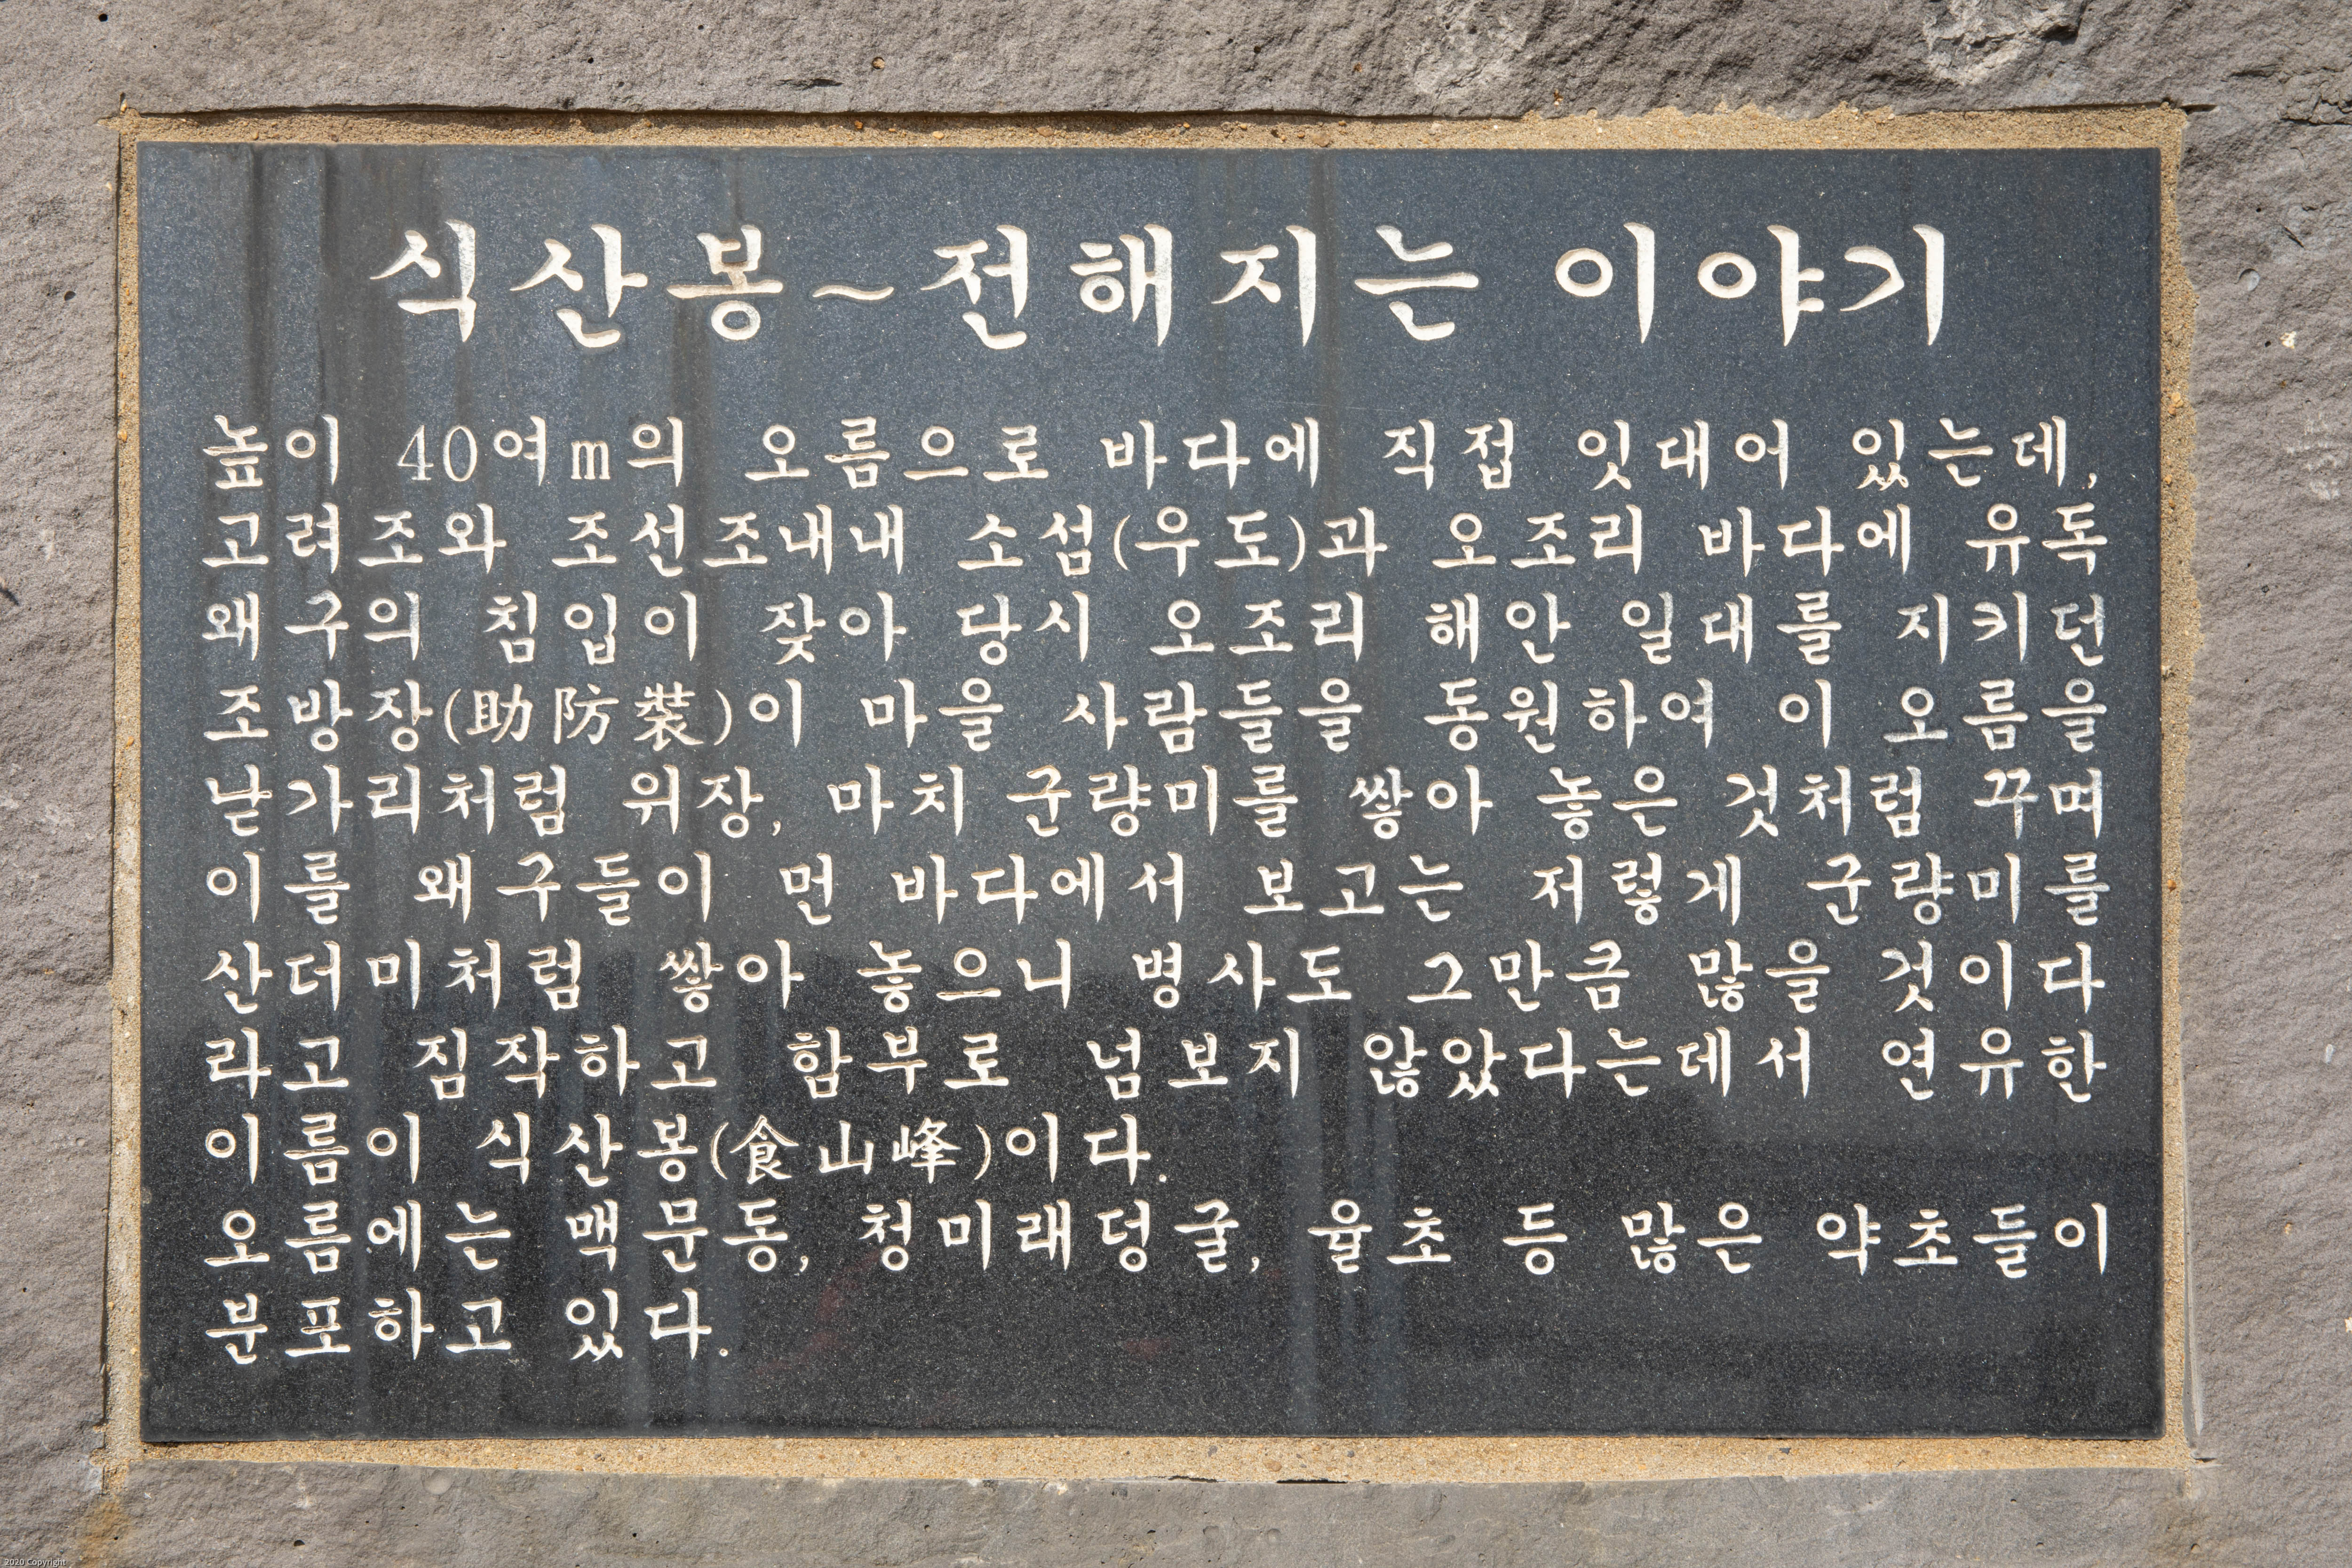 식산봉~전해지는 이야기
높이 40여m의 오름으로 바다에 직접 잇대어 있는데,
고려조와 조선조내내 소섬(우도)과 오조리 바다에 유독
왜구의 침입이 잦아 당시 오조리 해안 일대를 지키던
조방장(助防裝)이 마을 사람들을 동원하여 이 오름을
낟가리처럼 위장, 마치 군량미를 쌓아 놓은 것처럼 꾸며
이를 왜구들이 먼 바다에서 보고는 저렇게 군량미를
산더미처럼 쌓아 놓으니 병사도 그만큼 많을 것이다
라고 짐작하고 함부로 넘보지 않았다는데서 연유한
이름이 식산봉(食山峰)이다.
오름에는 맥문동, 청미래덩굴, 율초 등 많은 약초들이
분포하고 있다.
2020 Copyright